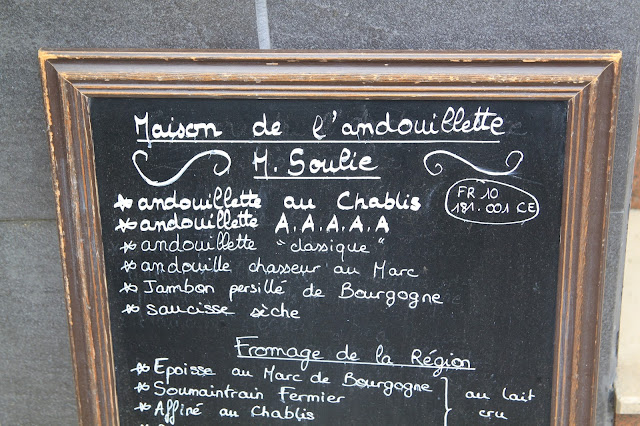 Maison de l'andouillette
M. Soulié
* andouillette au Chablis
FR 10
181.001 CE
* andouillette A.A.A.A.A
* andouillette "classique"
* andouille chasseur au Marc
* Jambon persillé de Bourgogne
* saucisse sèche
Fromage de la Région
* Epoisse au Marc de Bourgogne
* Soumaintrain Fermier
* Affiné au Chablis
au lait
cru